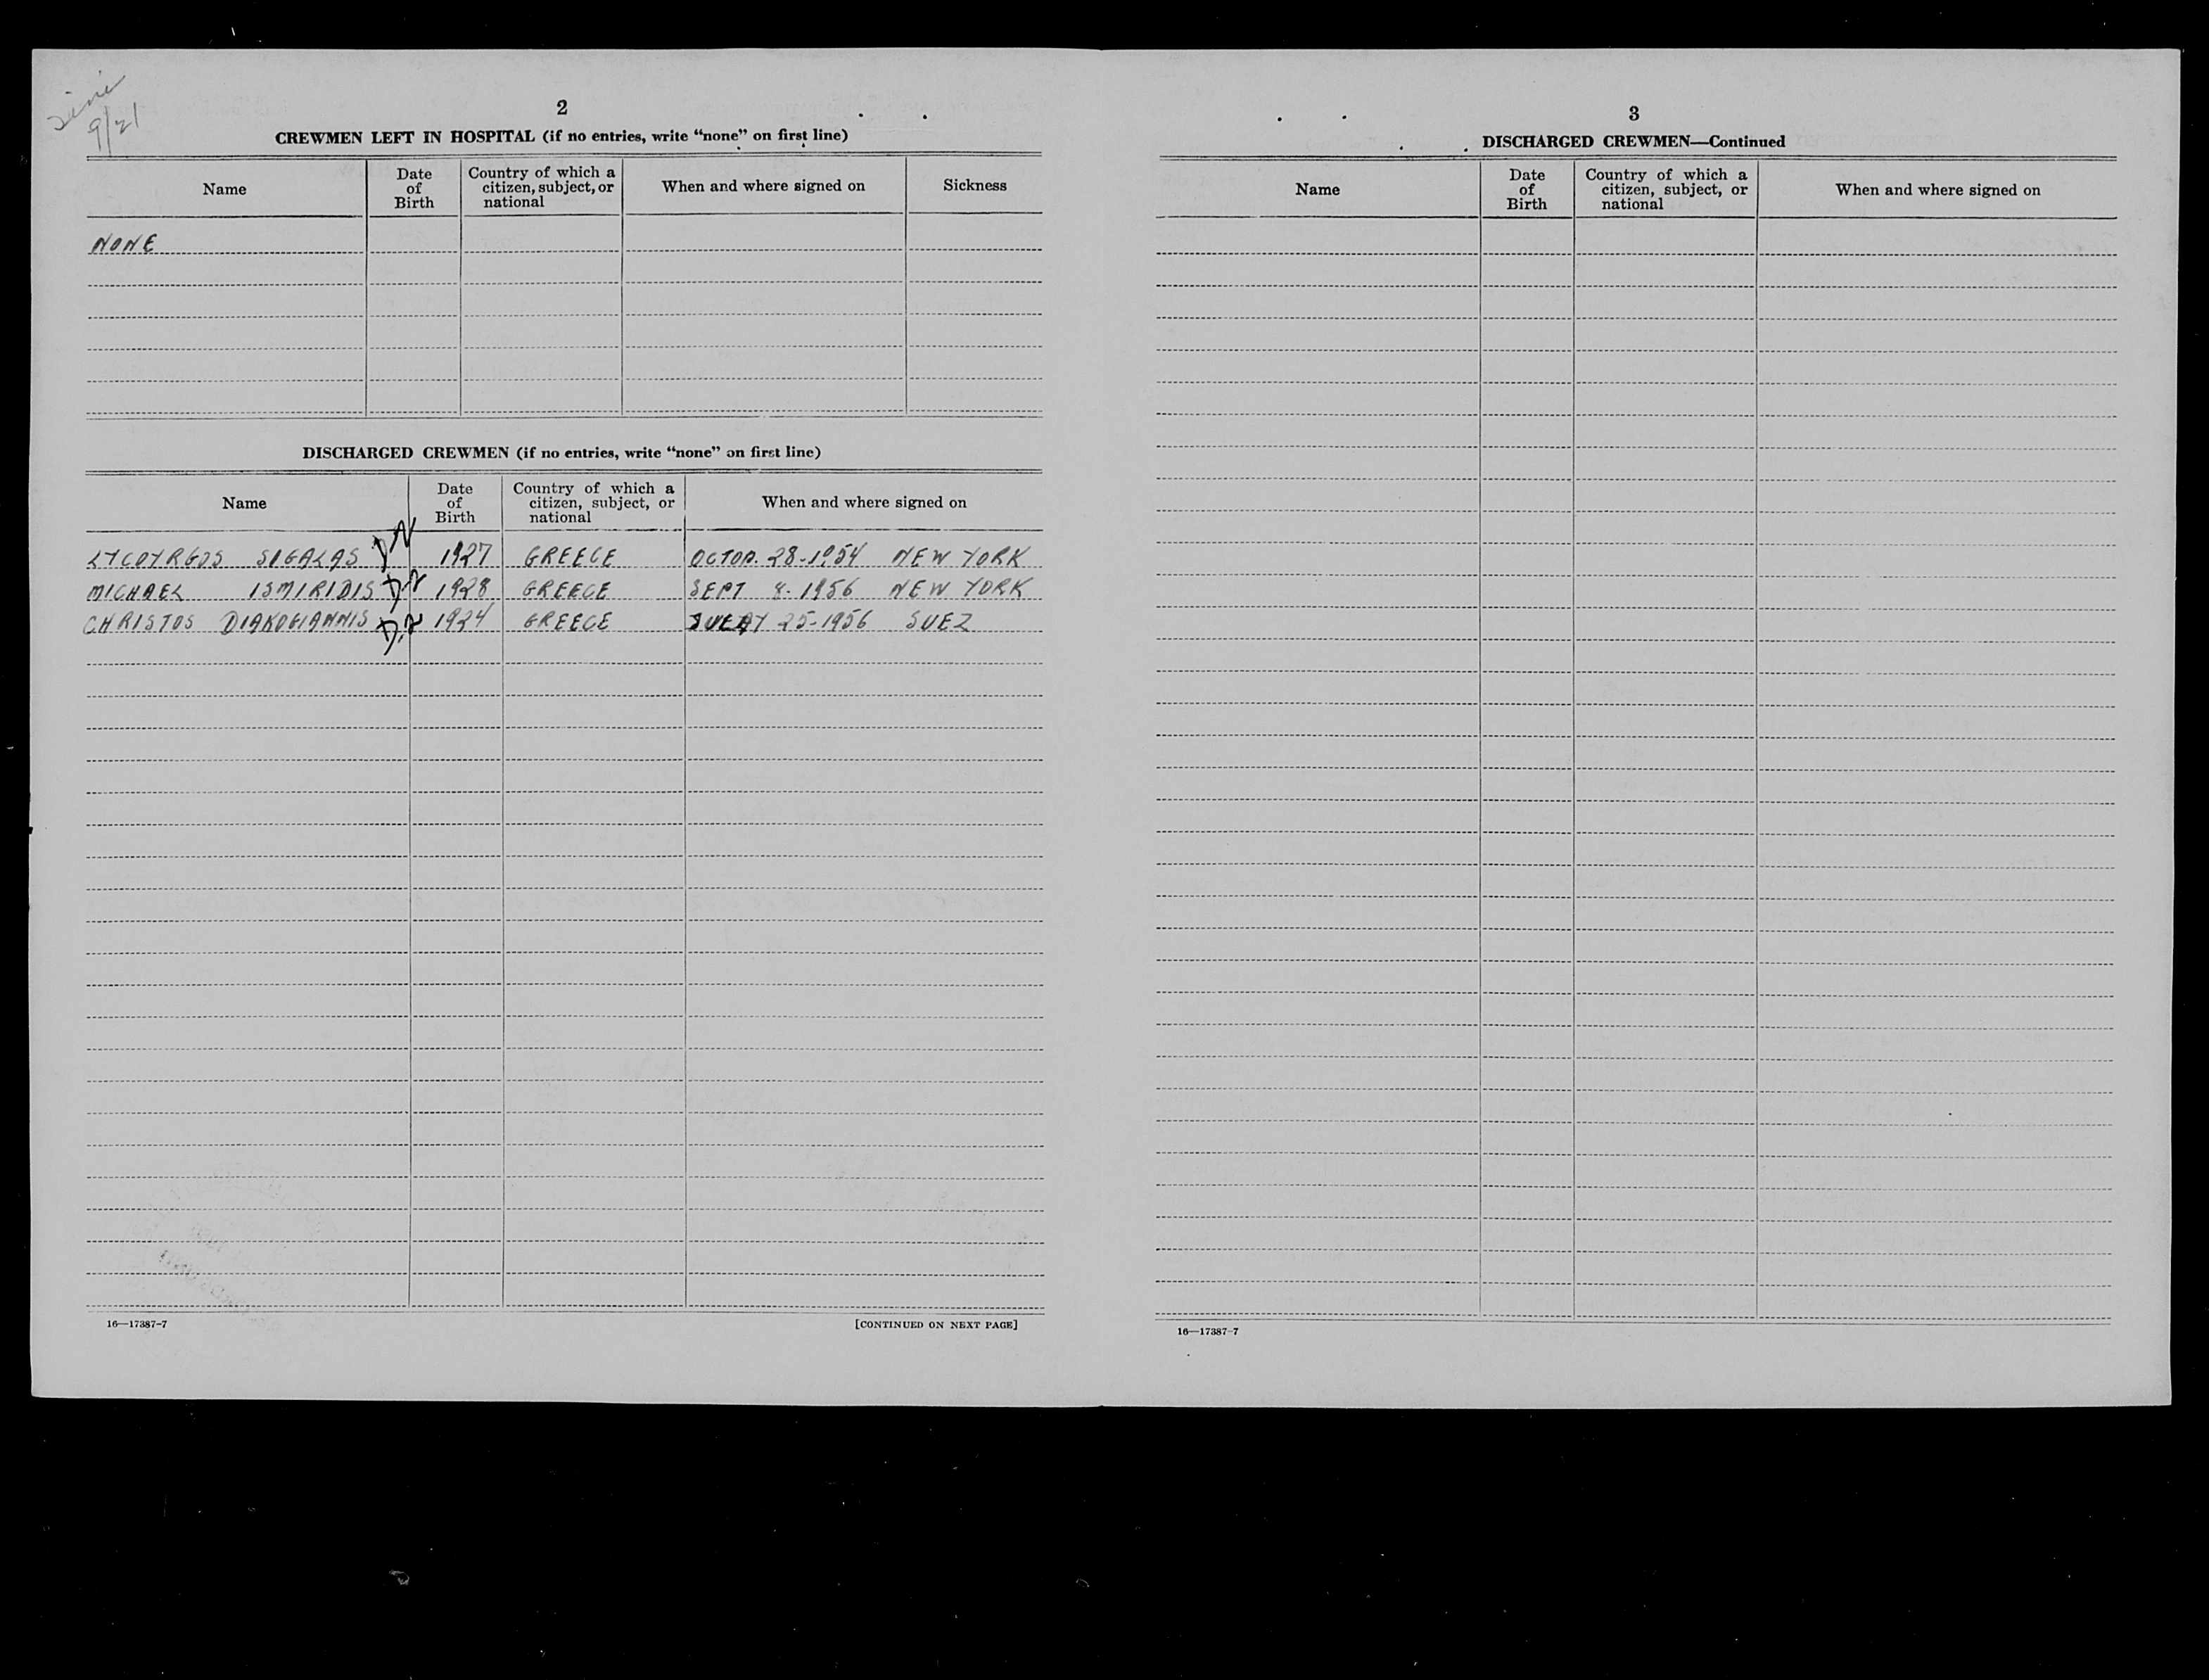 9/21
2
CREWMEN LEFT IN HOSPITAL (if no entries, write “none” on first line)
Name
Date of Birth
Country of which a citizen, subject, or national
When and where signed on
Sickness
NONE
DISCHARGED CREWMEN (if no entries, write “none” on first line)
Name
Date of Birth
Country of which a citizen, subject, or national
When and where signed on
LYCOYRGOS SIGALAS 1927 GREECE OCTOB. 28-1954 NEW YORK
MICHAEL ISMIRIDIS D-2 1928 GREECE SEPT 8-1956 NEW YORK
CHRISTOS DIAKOGIANNIS D-2 1924 GREECE 25-1956 SUEZ
16—17387-7
[CONTINUED ON NEXT PAGE]
3
DISCHARGED CREWMEN—Continued
Name
Date of Birth
Country of which a citizen, subject, or national
When and where signed on
16—17387-7